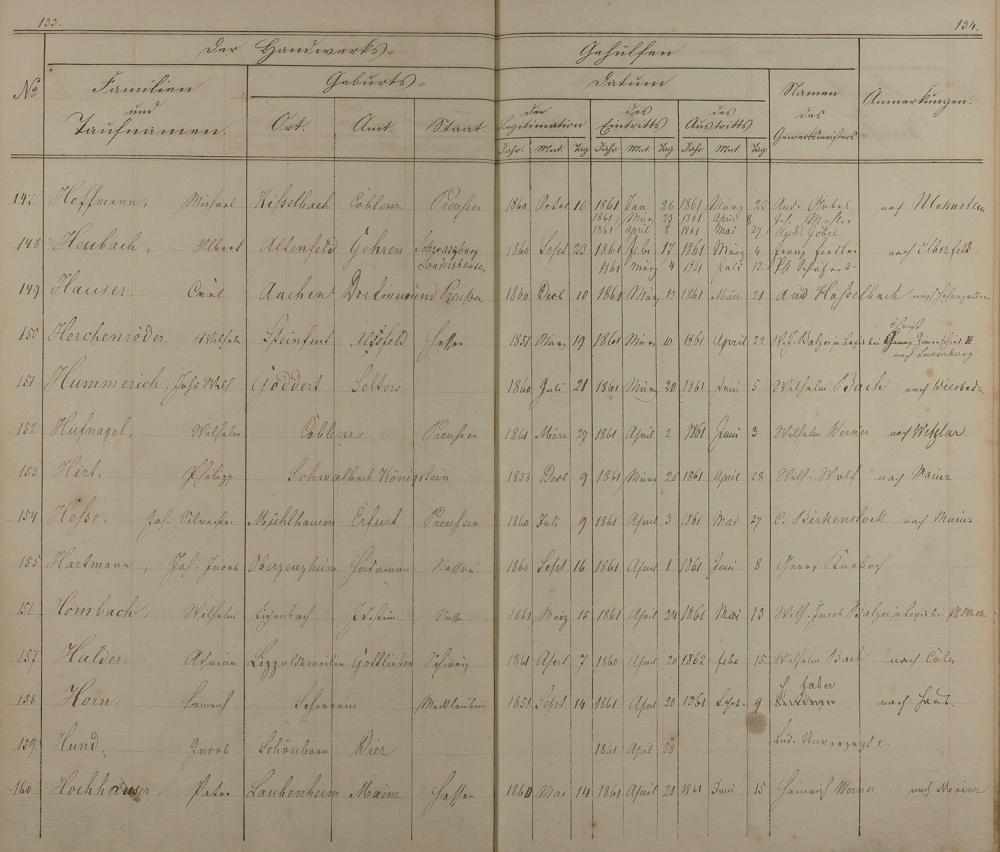 133.
134.
Der Handwerks-
Gehülfen
No
Familien
und
Taufnamen.
Geburts-
Ort. Amt. Staat.
Datum
der
Legitimation
des
Eintritts
des
Austritts
Jahr Mnt. Tag Jahr Mnt Tag Jahr Mnt. Tag
Namen
des
Gewerbsmeisters
Anmerkungen.
147 Hoffmann, Michael Kisselbach Coblenz Preußen 1860 16 1861 Jan 26 1861 März 22 And. nach
1861 März 23 1861 April 8
1861 April 8 1861 Mai 27 Göbel
148 Heubach, Albert Altenfeld Gehren Schwarzburg 1860 Sept 23 1861 Febr 17 1861 März 4 Franz Fiedler nach Elberfeld
Sondershausen 1861 März 4 1861 Juli 12
149 Hauser, Carl Aachen Dortmund Preußen 1860 Decb 10 1861 März 13 1861 März 21 And Hasselbach
150 Herchenröder Wilhelm Steinfurt Alsfeld Hessen 1857 März 19 1861 März 10 1861 April 22
nach Luxenburg
151 Hummerich, Johs Wilh Goddert Selters 1860 Juli 21 1861 März 20 1861 Juni 5 Wilhelm Bach nach Wiesbaden
152 Hufnagel, Wilhelm Coblenz Preußen 1861 März 27 1861 April 2 1861 Juni 3 Wilhelm Werner nach Wetzlar
153 Hirt. Philipp Schwalbach Königstein 1858 Decb 9 1861 März 25 1861 April 28 Wilh. Wolf nach Mainz
154 Hesse. Joh. Silvester Mühlhausen Erfurt Preußen 1860 Juli 9 1861 April 3 1861 Mai 27 C. Birkenstock nach Mainz
155 Hartmann, Joh. Jacob Oberzeuzheim Hadamar Nassau 1860 Sept 16 1861 April 1 1861 Juni 8 Georg
156 Hombach. Wilhelm Eisenbach Idstein Nass 1861 März 15 1861 April 24 1861 Mai 13 Wilh. Jacob Balzer in Logis bei
157 Halder. Gottlieben Schweiz 1861 April 7 1860 April 20 1862 Febr 15 Wilhelm Bach nach Cöln
158 Horn. Heinrich Schwerin Mecklenburg 1858 Sept 14 1861 April 20 1861 Sept. 9 Faber nach Haus.
159 Hund, Jacob Schönborn Diez 1861 April 28 Lud. Unverzagt
160 Hochhäuser. Peter Laubenheim Mainz Hessen 1860 Mai 14 1861 April 23 1861 Juni 15 Heinrich Werner nach Mainz